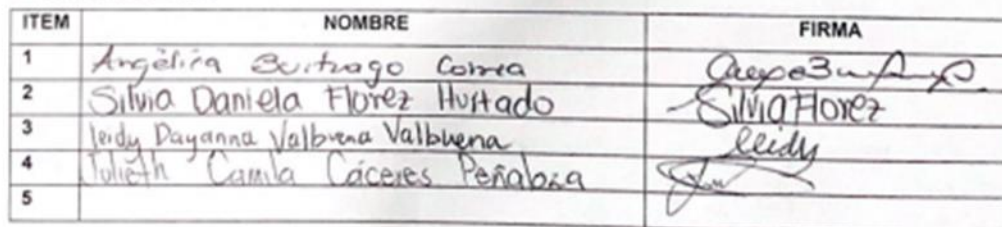 ITEM NOMBRE FIRMA
1 Angélica Buitrago Correa
2 Silvia Daniela Florez Hurtado Silvia Florez
3 leidy Dayanna Valbuena Valbuena leidy
4 Julieth Camila Cáceres Peñaloza
5